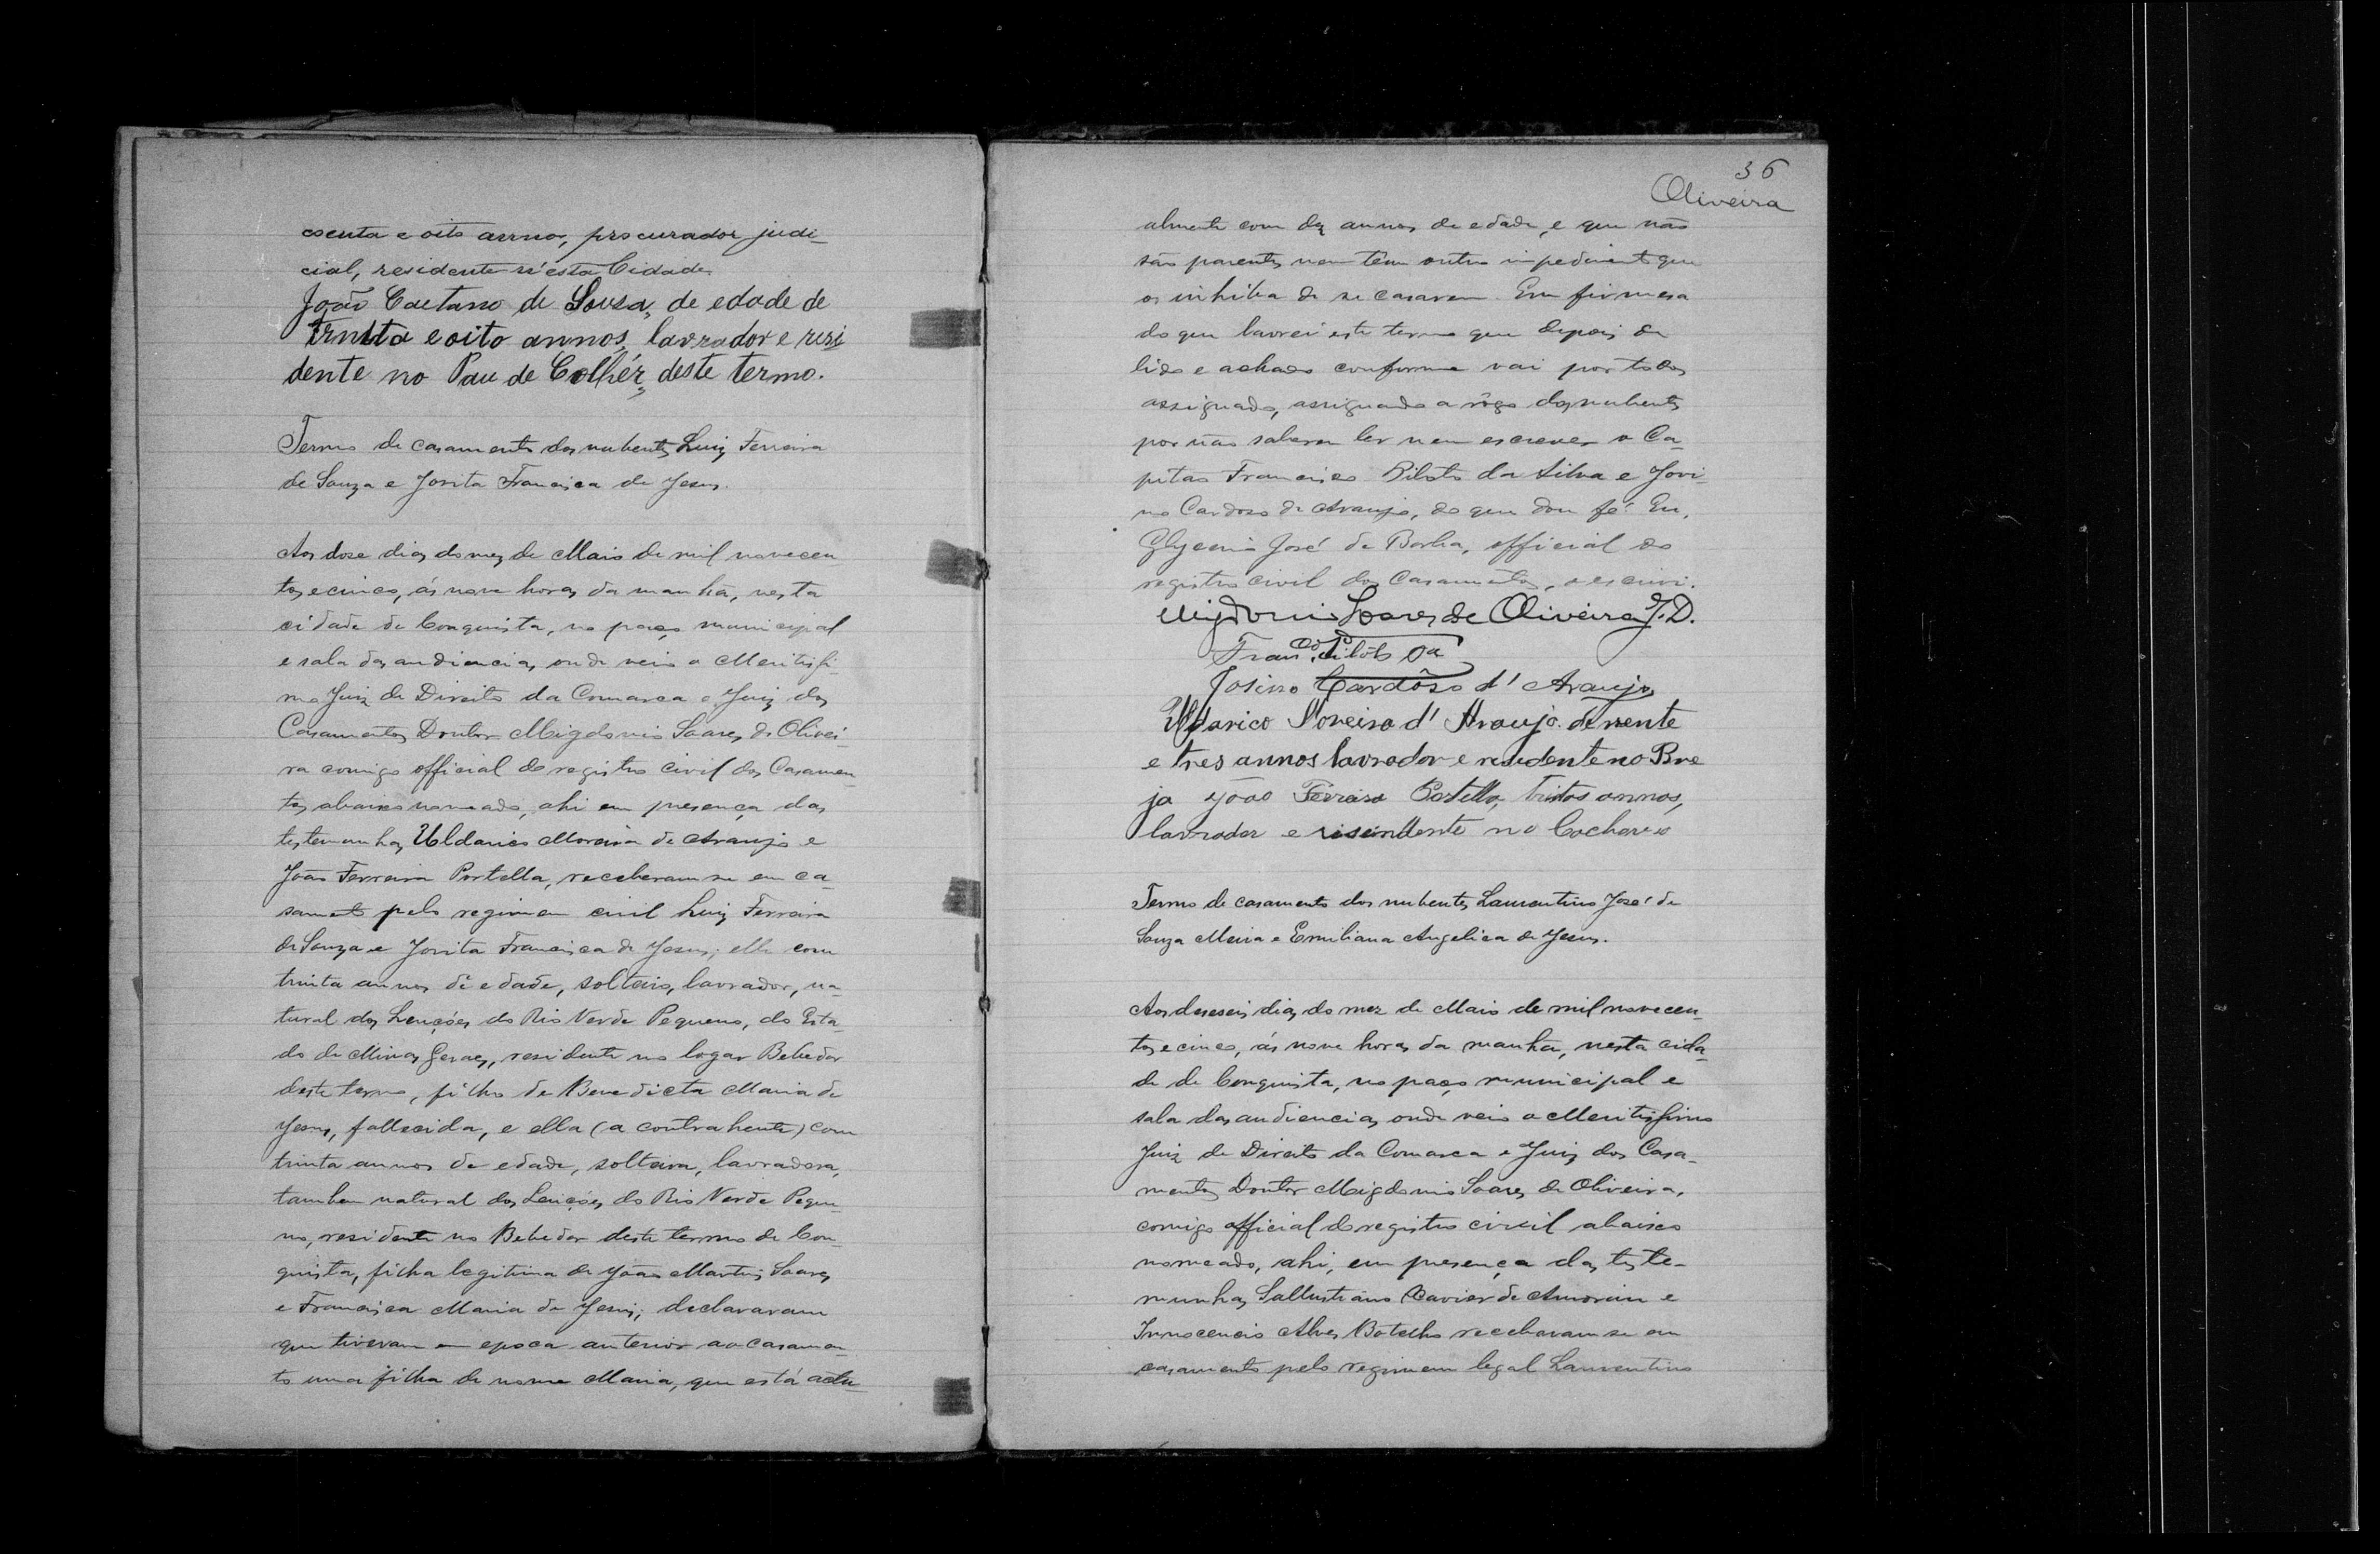 esenta e oito annos, procurador judi-
cial, residente n'esta Cidade
João Caetano de Sousa, de edade de
trinta e oito annos, lavrador e resi
dente no Pau de Colhér, deste termo.
Termo de casamento dos nubentes Luiz Ferreira
de Souza e Jovita Francisca de Jesus.
Aos dose dias do mez de Maio de mil novecen
tos e cinco, ás nove horas da manhã, nesta
cidade de Conquista, no paço municipal
e sala das audiencias, onde veio o Meritissi-
mo Juiz de Direito da Comarca e Juiz dos
Casamentos Doutor Migdonio Soares de Olivei-
ra comigo official do registro civil dos Casamen
tos abaixo nomeado, ahi em presença das
testemunhas Uldarico Moreira de Araujo e
João Ferreira Portella, receberam se em ca-
samento pelo regimen civil Luiz Ferreira
de Souza e Jovita Francisca de Jesus; elle com
trinta annos de edade, solteiro, lavrador, na-
tural dos Lençóes do Rio Verde Pequeno, do Esta-
do de Minas Geraes, residente no logar Bebedor
deste termo, filho de Benedicta Maria de
Jesus, fallecida, e ella (a contrahente) com
trinta annos de edade, solteira, lavradora,
tambem natural dos Lençóes do Rio Verde Peque-
no, residente no Bebedor deste termo de Con-
quista, filha legitima de João Martins Soares
e Francisca Maria de Jesus; declararam
que tiveram em epoca anterior ao casamen-
to uma filha de nome Maria, que está actu-
36
Oliveira
almente com dez annos de edade, e que não
são parentes nem têm outro impedimento que
os inhiba de se casarem. Em firmesa
do que lavrei este termo que depois de
lido e achado conforme vai por todos
assignado, assignando a rôgo dos nubentes
por não saberem ler nem escrever o Ca-
pitão Francisco Piloto da Silva e Jovi-
no Cardoso de Araujo, do que dou fé. Eu,
Glycerio José da Rocha, official do
registro civil dos Casamentos, o escrevi.
Migdonio Soares de Oliveira J.D.
Fran.co Pilôto
Josino Cardôso d' Araujo
Uldarico Moreira d' Araujo. de vente
e tres annos lavrador e residente no Bre
jo João Ferreira Portella, trinta annos,
lavrador e risindente no
Termo de casamento dos nubentes Laurentino José de
Souza Meira e Emiliana Angelica de Jesus.
Aos deseseis dias do mez de Maio de mil novecen-
tos e cinco, ás nove horas da manhã, nesta cida-
de de Conquista, no paço municipal e
sala das audiencias, onde veio o Meritissimo
Juiz de Direito da Comarca e Juiz dos Casa-
mentos Doutor Migdonio Soares de Oliveira,
comigo official do registro civil abaixo
nomeado, ahi, em presença das teste-
munhas Sallustiano Xavier de Amorim e
Innocencio Alves Botelho receberam se em
casamento pelo regimem legal Laurentino